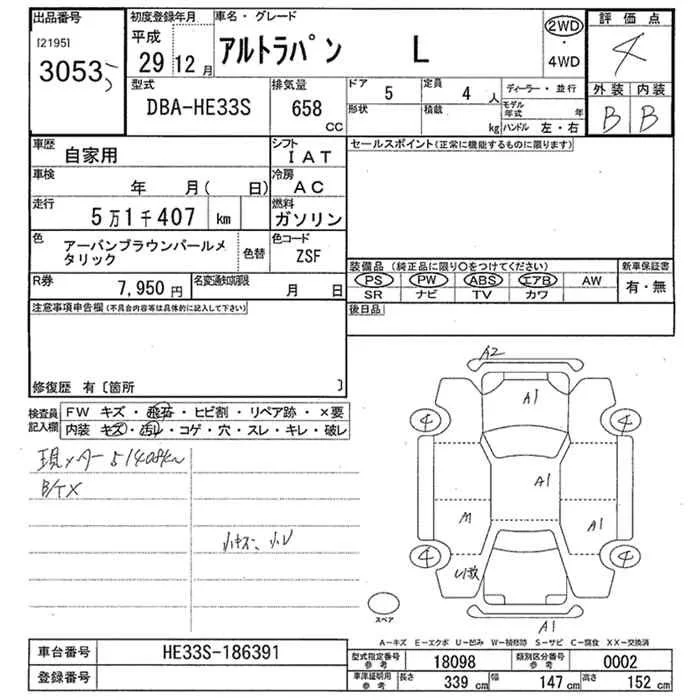 出品番号
[2195]
3053
初度登録年月
平成
29 12月
車名・グレード
アルトラパン L
2WD
・
4WD
評価点
4
型式
DBA-HE33S
排気量
658
cc
ドア
5
定員
4 人
ディーラー・並行
形状
積載
kg
モデル年式
年
ハンドル 左・右
外装 内装
B B
車歴
自家用
シフト
IAT
セールスポイント(正常に機能するものに限ります)
車検
年 月( 日)
冷房
AC
走行
5万1千407 km
燃料
ガソリン
色
アーバンブラウンパールメ
タリック
色替
色コード
ZSF
R券
7,950 円
名変通知期限
月 日
装備品(純正品に限り○をつけてください)
新車保証書
PS PW ABS エアB AW
有・無
SR ナビ TV カワ
注意事項申告欄(不具合内容等は具体的に記入して下さい)
後日品
修復歴 有〔箇所 〕
検査員
記入欄
FW キズ・飛石・ヒビ割・リペア跡・×要
内装 キズ・汚レ・コゲ・穴・スレ・キレ・破レ
現メーター51408km
B/TX
小キズ、小U
A2
A1
4 4
A1
M A1
4 4
U1
A1
スペア
A-キズ E-エクボ U-凹み W-補修跡 S-サビ C-腐食 XX-交換済
車台番号
HE33S-186391
登録番号
型式指定番号
参考
18098
類別区分番号
参考
0002
車庫証明用
参考
長さ 339 cm
幅 147 cm
高さ 152 cm